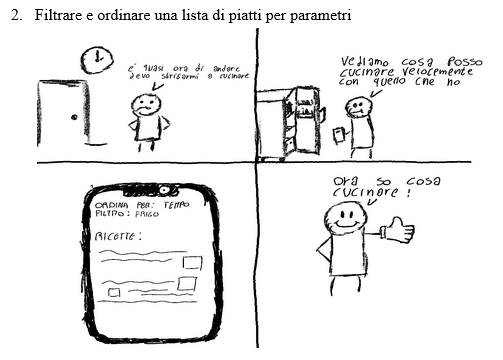 2. Filtrare e ordinare una lista di piatti per parametri
è quasi ora di andare
devo sbrigarmi a cucinare
Vediamo cosa posso
cucinare velocemente
con quello che ho
ORDINA PER: TEMPO
FILTRO: FRIGO
RICETTE:
ora so cosa
cucinare!